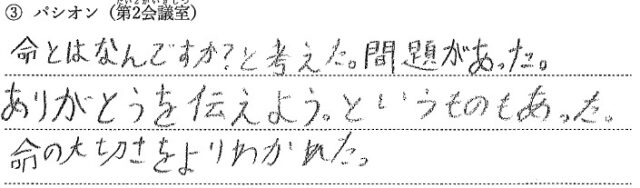 ③ パシオン（第2会議室）
命とはなんですか?と考えた。問題があった。
ありがとうを伝えよう。というものもあった。
命の大切さをよりわかれた。